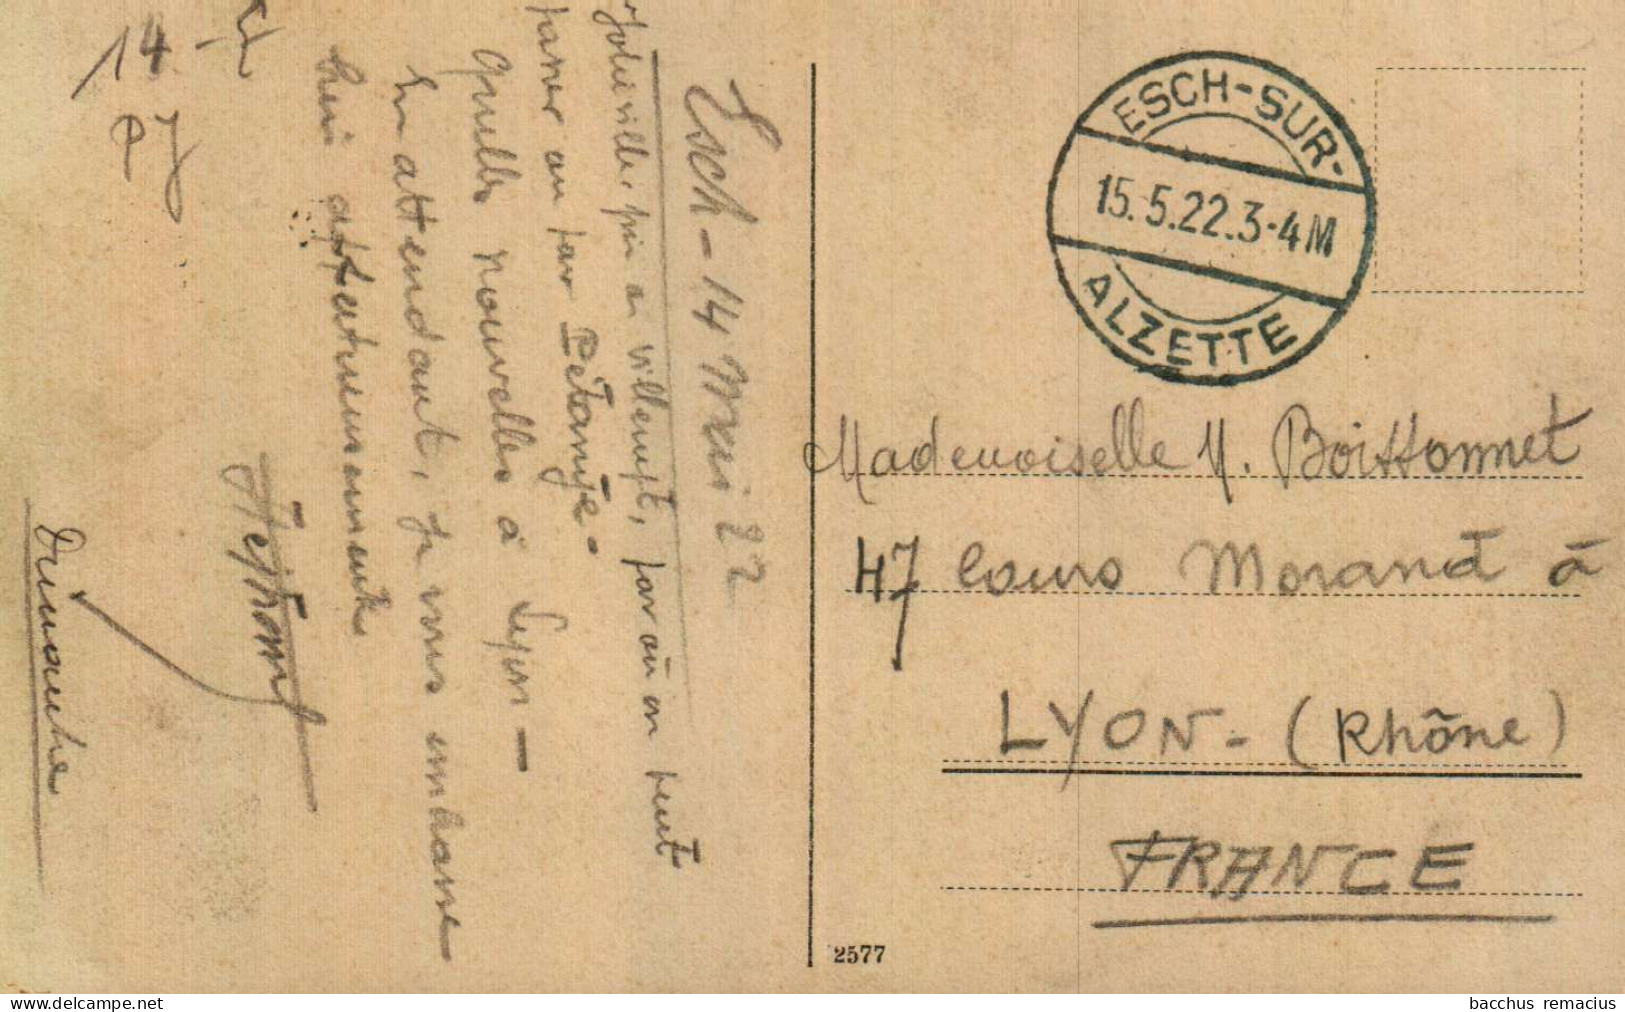 Esch - 14 Mai 22
Joliville, puis à Villerupt, par où on peut
passer ou par Pétange -
Quelles nouvelles à Lyon -
En attendant, je vous embrasse
bien affectueusement
Dimanche
14
ESCH-SUR-
15.5.22.3-4M
ALZETTE
Mademoiselle M. Boissonnet
47 Cours Morand à
LYON - (Rhône)
FRANCE
2577
bacchus remacius